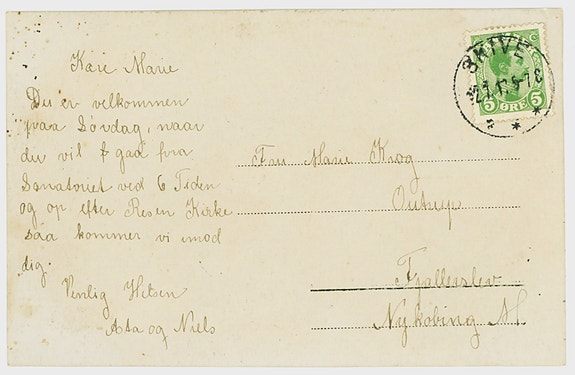 Kære Marie
Du er velkommen
paa Søndag, naar
du vil gaa fra
Sanatoriet ved 6 Tiden
og op efter Resen Kirke
saa kommer vi imod
dig.
Venlig Hilsen
Asta og Niels
SKIVE
5 ØRE 5
Fru Marie Krog
Outrup
Fjallerslev
Nykøbing M.